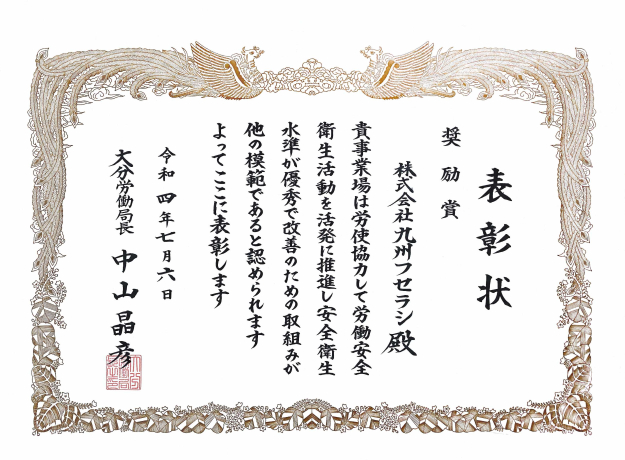 表彰状
奨励賞
株式会社九州フセラシ殿
貴事業場は労使協力して労働安全
衛生活動を活発に推進し安全衛生
水準が優秀で改善のための取組みが
他の模範であると認められます
よってここに表彰します
令和四年七月六日
大分労働局長 中山晶彦